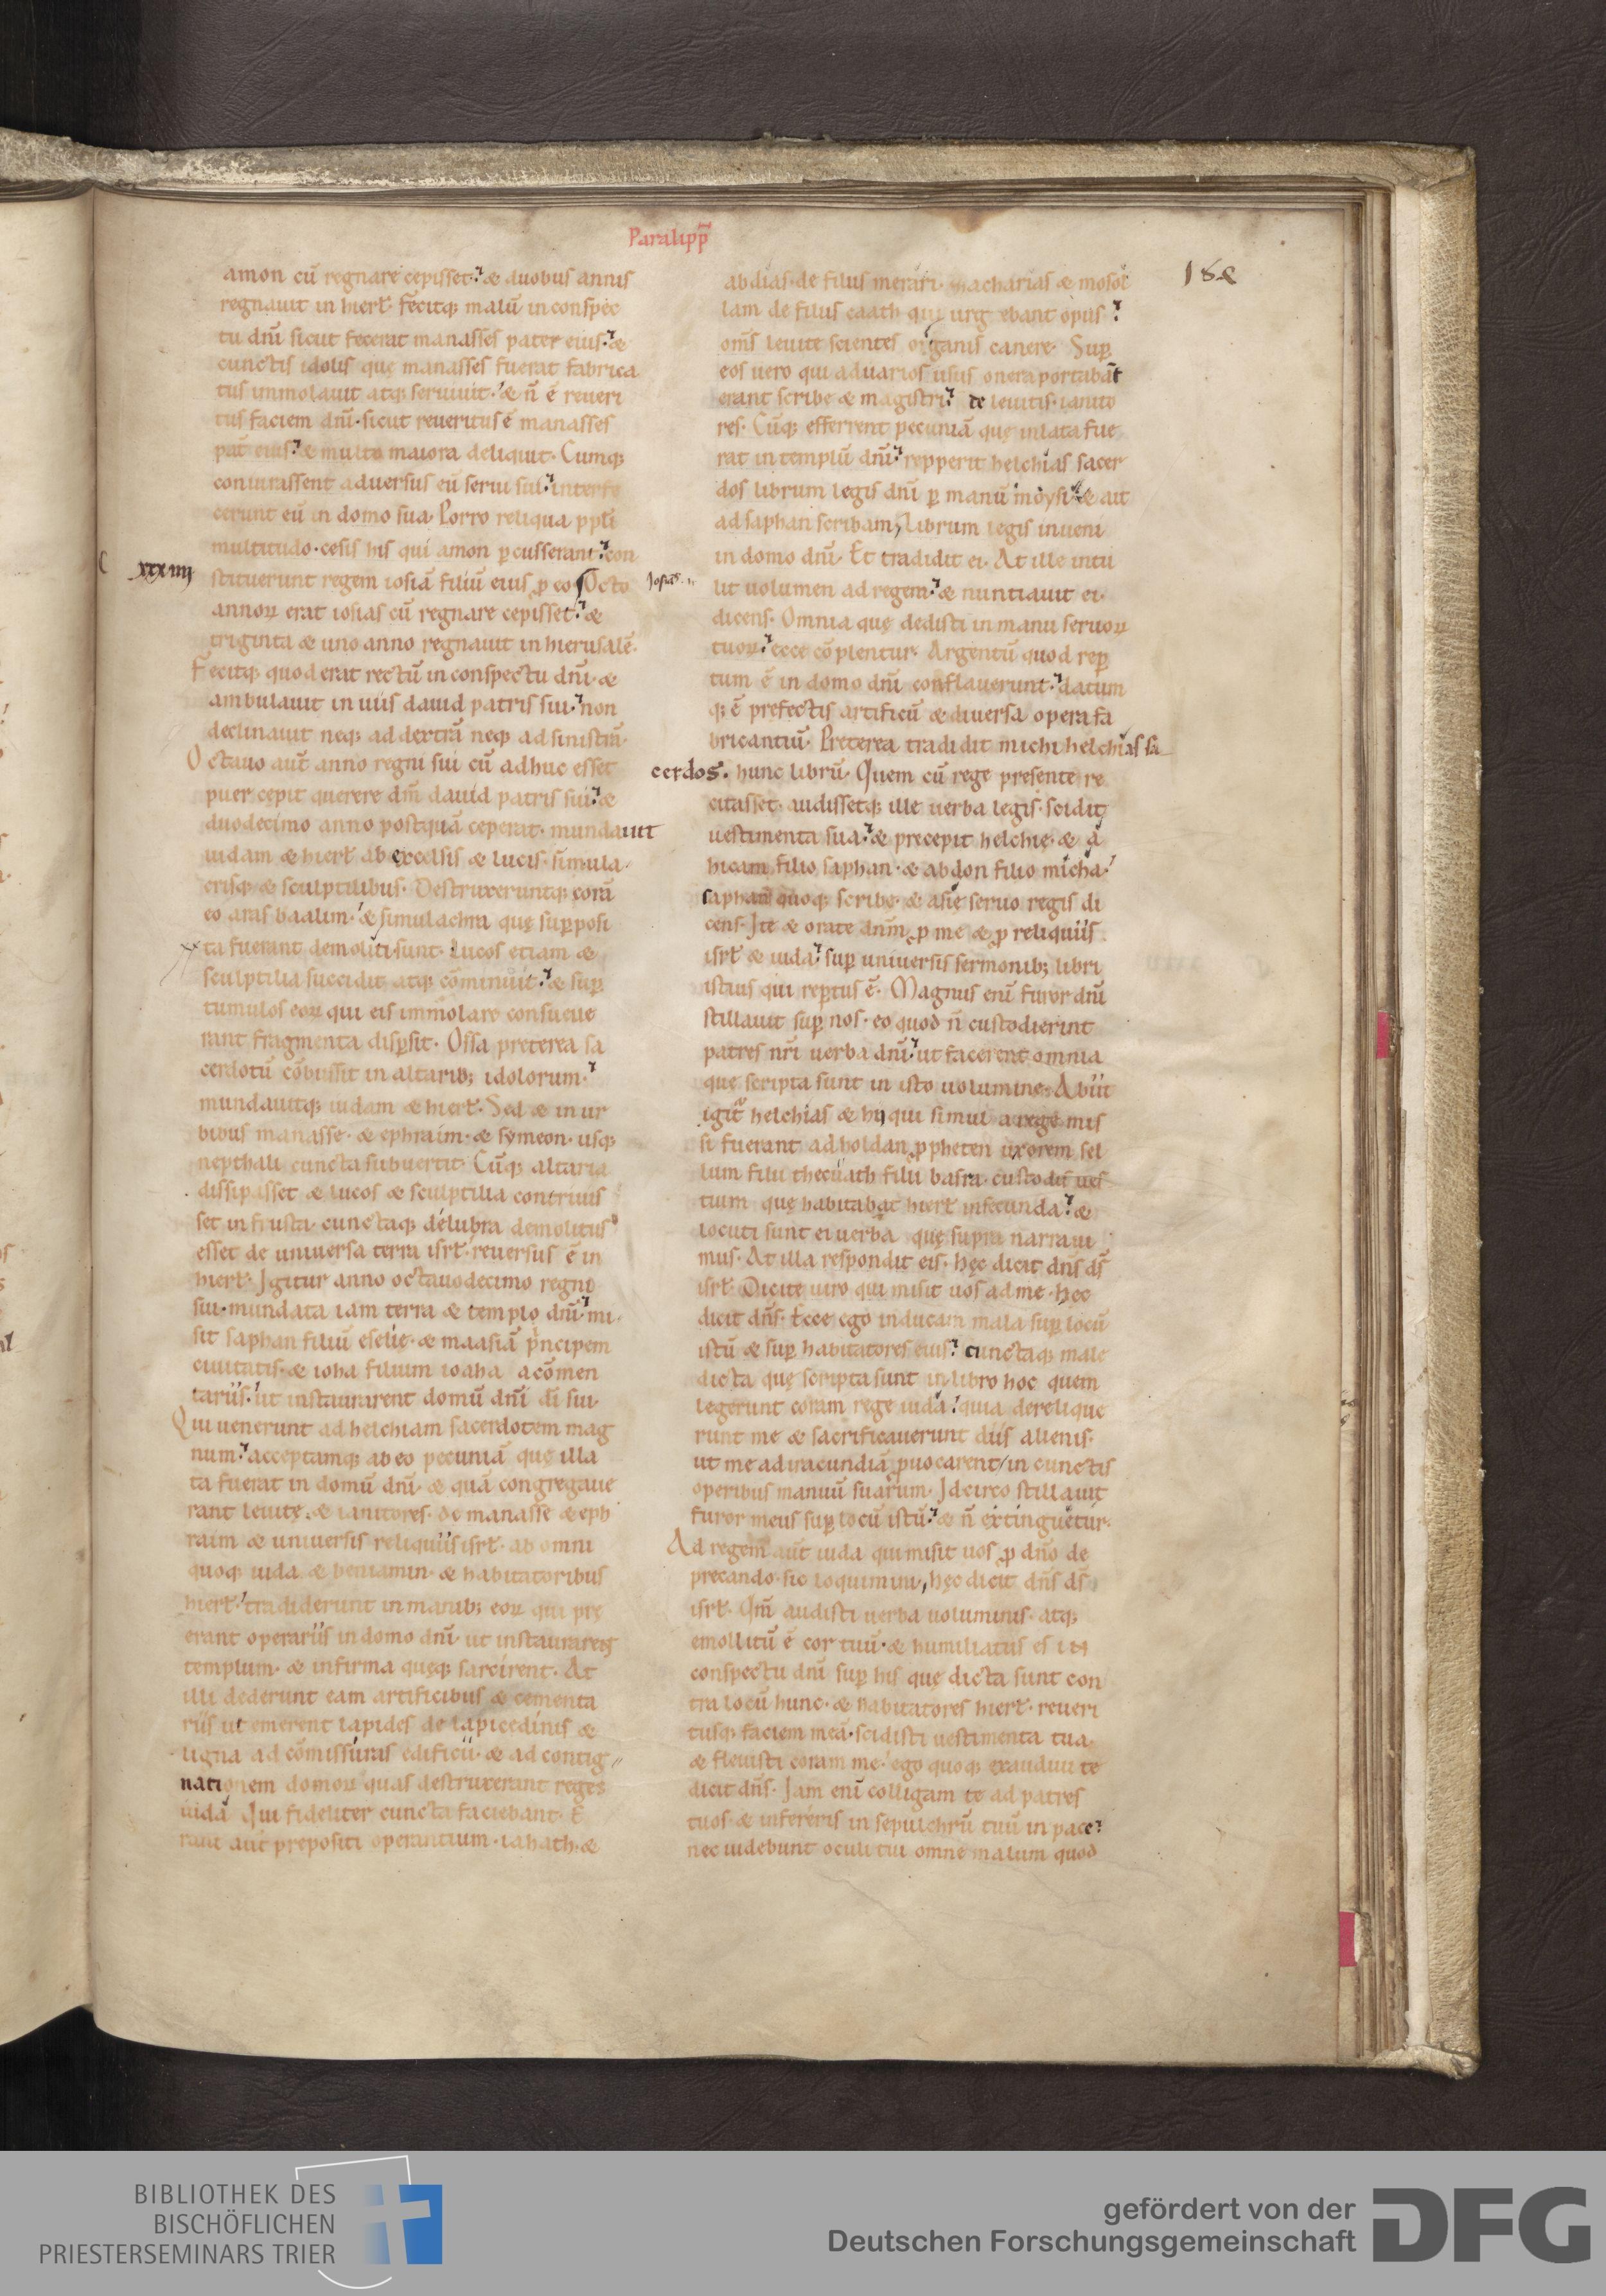 Paralipp̄
182
amon cū regnare cepisset. & duobus annis
regnauit in hierl̄. fecitq; malū in conspec
tu dn̄i sicut fecerat manasses pater eius. &
cunctis idolis quę manasses fuerat fabrica
tus immolauit atq; seruiuit. & n̄ ē reueri
tus faciem dn̄i. sicut reueritus ē manasses
pat̄ eius. & multo maiora deliquit. Cumq;
coniurassent aduersus eū serui sui. interfe
cerunt eū in domo sua. Porro reliqua pp̄li
multitudo. cesis his qui amon ꝑcusserant. con
C xxxiiii
stituerunt regem iosiā filiū eius ꝓ eo. Octo
Iosias
annoꝝ erat iosias cū regnare cepisset. &
triginta & uno anno regnauit in hierusalē.
Fecitq; quod erat rectū in conspectu dn̄i. &
ambulauit in uiis dauid patris sui. non
declinauit neq; ad dextrā neq; ad sinistrā.
Octauo aūt anno regni sui cū adhuc esset
puer cepit querere dm̄ dauid patris sui. &
duodecimo anno postquā ceperat. mundauit
iudam & hierl̄ ab excelsis & lucis. simula
crisq; & sculptilibus. Destruxeruntq; corā
eo aras baalim. & simulachra quę suꝑposi
ta fuerant demoliti sunt. Lucos etiam &
sculptilia succidit atq; cōminuit. & suꝑ
tumulos eoꝝ qui eis immolare consueue
rant fragmenta disꝑsit. Ossa preterea sa
cerdotū cōbussit in altarib; idolorum.
mundauitq; iudam & hierl̄. Sed & in ur
bibus manasse. & ephraim. & symeon. usq;
nepthali cuncta subuertit. Cūq; altaria
dissipasset & lucos & sculptilia contriuis
set in frusta. cunctaq; delubra demolitus
esset de uniuersa terra isrl̄. reuersus ē in
hierl̄. Igitur anno octauodecimo regni
sui. mundata iam terra & templo dn̄i. mi
sit saphan filiū eselię. & maasiā p̄ncipem
ciuitatis. & ioha filium ioaha a cōmen
tariis. ut instaurarent domū dn̄i dī sui.
Qui uenerunt ad helchiam sacerdotem mag
num. acceptamq; ab eo pecuniā quę illa
ta fuerat in domū dn̄i. & quā congregaue
rant leuitę. & ianitores. de manasse & eph
raim & uniuersis reliquiis isrl̄. ab omni
quoq; iuda. & beniamin. & habitatoribus
hierl̄. tradiderunt in manib; eoꝝ qui prę
erant operariis in domo dn̄i. ut instaurarent
templum. & infirma quęq; sarcirent. At
illi dederunt eam artificibus & cementa
riis ut emerent lapides de lapicedinis &
ligna ad cōmissuras edificii. & ad contig
nationem domoꝝ quas destruxerant reges
iuda. Qui fideliter cuncta faciebant. E
rant aūt prepositi operantium. iahath. &
abdias. de filiis merari. macharias & mosol
lam de filiis caath qui urgebant opus.
om̄s leuite scientes organis canere. Suꝑ
eos uero qui ad uarios usus onera portabāt
erant scribe & magistri. de leuitis. ianito
res. Cūq; efferrent pecuniā quę inlata fue
rat in templū dn̄i. repperit helchias sacer
dos librum legis dn̄i ꝑ manū moysi. & ait
ad saphan scribam, Librum legis inueni
in domo dn̄i. Et tradidit ei. At ille intu
lit uolumen ad regem. & nuntiauit ei.
dicens. Omnia quę dedisti in manu seruoꝝ
tuoꝝ. ecce cōplentur. Argentū quod reꝑ
tum ē in domo dn̄i conflauerunt. datum
q; ē prefectis artificū & diuersa opera fa
bricantiū. Preterea tradidit michi helchias sa
cerdos. hunc librū. Quem cū rege presente re
citasset. audissetq; ille uerba legis. scidit
uestimenta sua. & precepit helchię. & a
hicam filio saphan. & abdon filio micha.
saphan quoq; scribe. & asię seruo regis di
cens. Ite & orate dnm̄ ꝓ me & ꝓ reliquiis
isrl̄ & iuda. suꝑ uniuersis sermonib; libri
istius qui reꝑtus ē. Magnus enī furor dn̄i
stillauit suꝑ nos. eo quod n̄ custodierint
patres nr̄i uerba dn̄i. ut facerent omnia
quę scripta sunt in isto uolumine. Abiit
igit̄ helchias & hij qui simul a rege mis
si fuerant ad holdan ꝓpheten uxorem sel
lum filii thecuath filii basra custodis ues
tium quę habitabat hierl̄ in secunda. &
locuti sunt ei uerba quę supra narraui
mus. At illa respondit eis. hęc dicit dn̄s ds̄
isrl̄. Dicite uiro qui misit uos ad me. hęc
dicit dn̄s. Ecce ego inducam mala suꝑ locū
istū & suꝑ habitatores eius. cunctaq; male
dicta quę scripta sunt in libro hoc quem
legerunt coram rege iuda. quia derelique
runt me & sacrificauerunt diis alienis.
ut me ad iracundiā ꝓuocarent in cunctis
operibus manuū suarum. Idcirco stillauit
furor meus suꝑ locū istū. & n̄ extinguetur.
Ad regem aūt iuda qui misit uos ꝓ dn̄o de
precando. sic loquimini, hęc dicit dn̄s ds̄
isrl̄. Qm̄ audisti uerba uoluminis. atq;
emollitū ē cor tuū. & humiliatus es in
conspectu dn̄i suꝑ his quę dicta sunt con
tra locū hunc. & habitatores hierl̄. reueri
tusq; faciem meā. scidisti uestimenta tua.
& fleuisti coram me. ego quoq; exaudiui te
dicit dn̄s. Iam enī colligam te ad patres
tuos. & infereris in sepulchrū tuū in pace.
nec uidebunt oculi tui omne malum quod
BIBLIOTHEK DES
BISCHÖFLICHEN
PRIESTERSEMINARS TRIER
gefördert von der
Deutschen Forschungsgemeinschaft
DFG